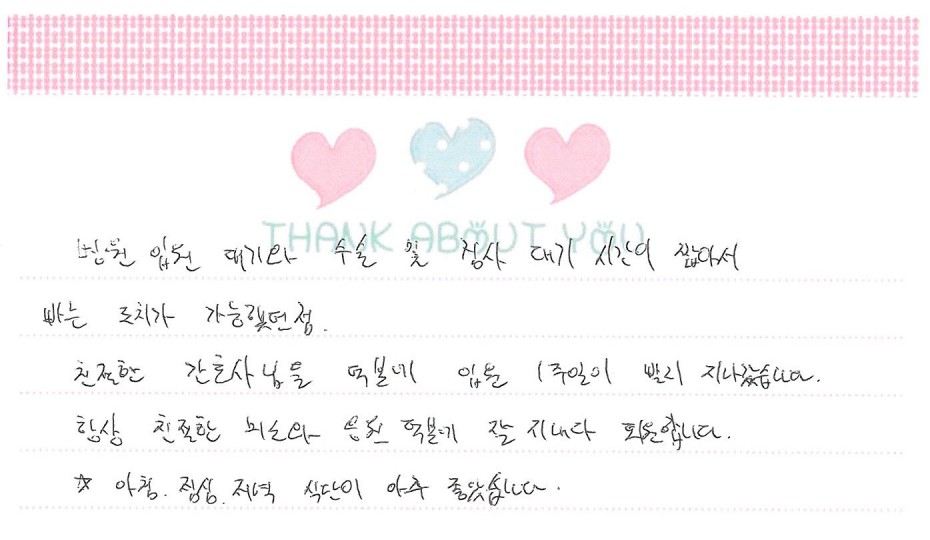 THANK ABOUT YOU
병원 입원 대기와 수술 및 검사 대기 시간이 짧아서
빠른 조치가 가능했던점.
친절한 간호사님들 덕분에 입원 1주일이 빨리 지나갔습니다.
항상 친절한 미소와 응원 덕분에 잘 지내다 퇴원합니다.
☆ 아침. 점심. 저녁 식단이 아주 좋았습니다.